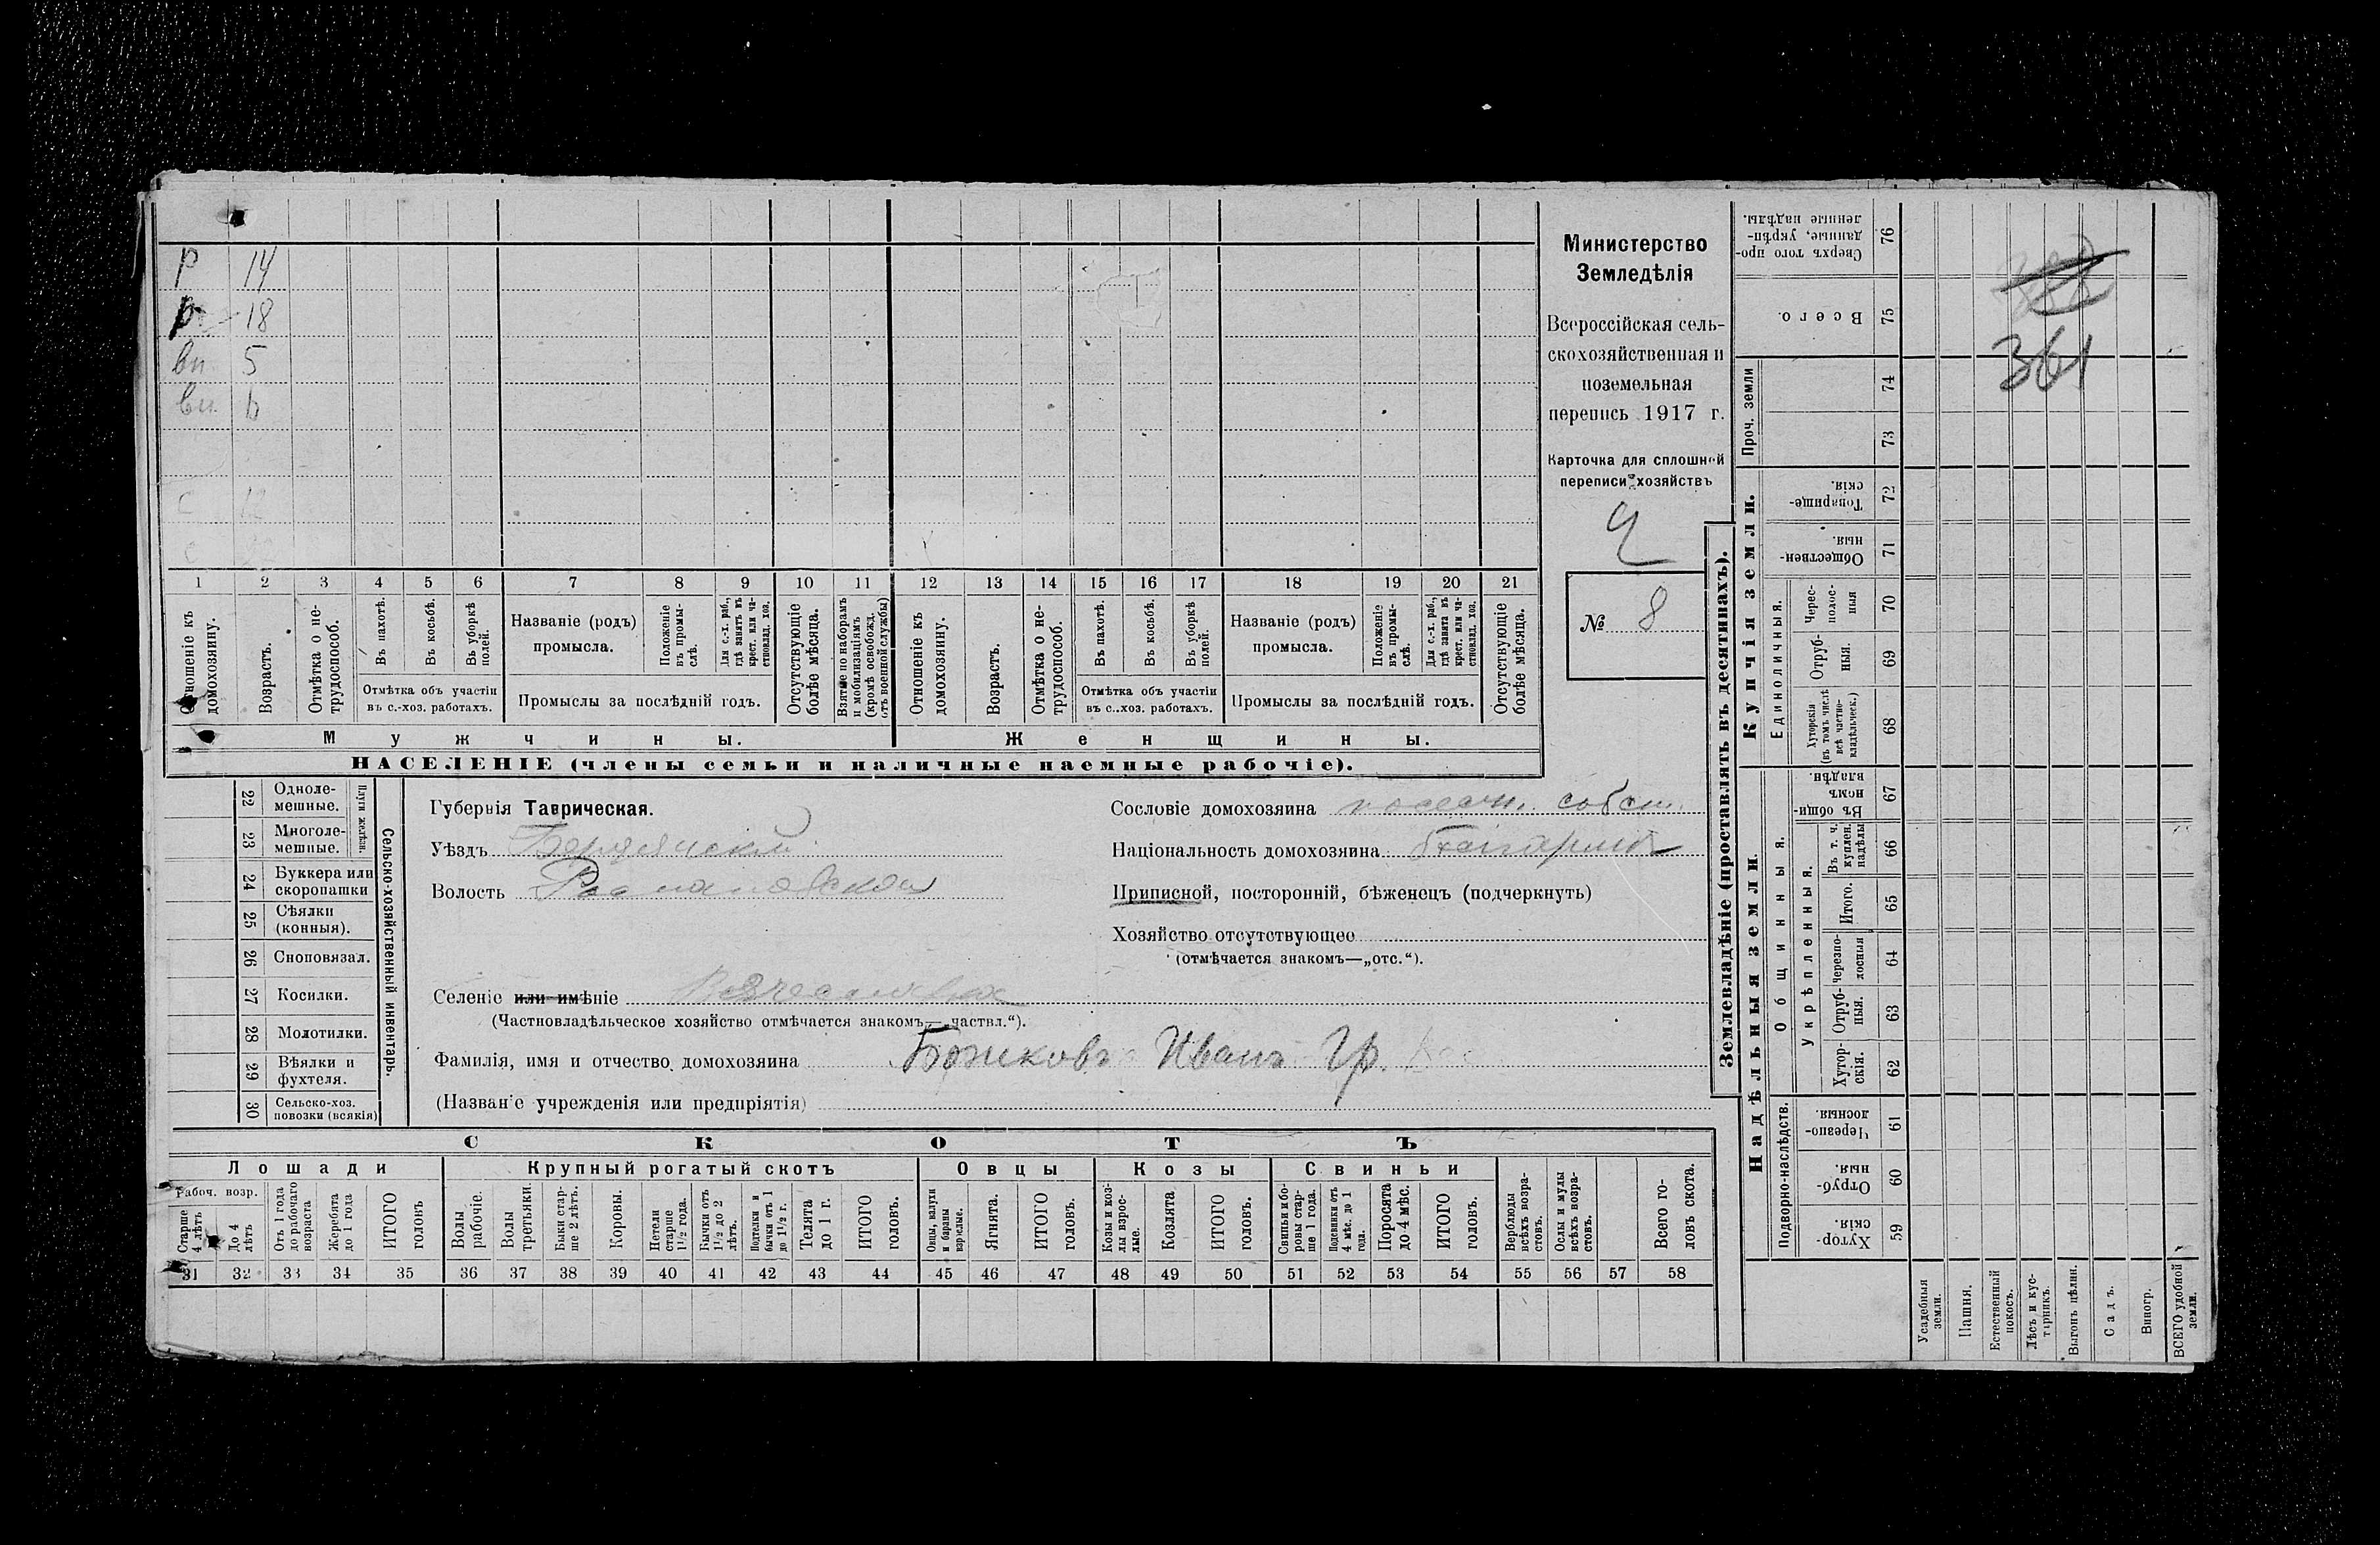 Р 14
р 18
вн 5
вн 6
с 12
с
1 2 3 4 5 6 7 8 9 10 11 12 13 14 15 16 17 18 19 20 21
Отношеніе къ домохозяину.
Возрастъ.
Отмѣтка о не-
трудоспособ.
Въ пахотѣ.
Въ косьбѣ.
Въ уборкѣ
полей.
Отмѣтка объ участіи
въ с.-хоз. работахъ.
Названіе (родъ)
промысла.
Положеніе
въ промы-
слѣ.
Для с.-х. раб.,
гдѣ занятъ въ
крест. или ча-
стновлад. хоз.
Промыслы за послѣдній годъ.
Отсутствующіе
болѣе мѣсяца.
Взятые по наборамъ
и мобилизаціямъ
(кромѣ освобожд.
отъ военной службы)
Отношеніе къ
домохозяину.
Возрастъ.
Отмѣтка о не-
трудоспособ.
Въ пахотѣ.
Въ косьбѣ.
Въ уборкѣ
полей.
Отмѣтка объ участіи
въ с..хоз. работахъ.
Названіе (родъ)
промысла.
Положеніе
въ промы-
слѣ.
Для с.-х. раб.,
гдѣ занята въ
крест. или ча-
стновлад. хоз.
Промыслы за послѣдній годъ.
Отсутствующіе
болѣе мѣсяца.
Мужчины.
Женщины.
НАСЕЛЕНІЕ (члены семьи и наличные наемные рабочіе).
Министерство
Земледѣлія
Всероссійская сель-
скохозяйственная и
поземельная
перепись 1917 г.
Карточка для сплошной
переписи хозяйствъ
№ 8
22 Одноле-
мешные.
23 Многоле-
мешные.
Плуги желѣзн.
24 Буккера или
скоропашки
25 Сѣялки
(конныя).
26 Сноповязал.
27 Косилки.
28 Молотилки.
29 Вѣялки и
фухтеля.
30 Сельско-хоз.
повозки (всякія)
Сельско-хозяйственный инвентарь.
Губернія Таврическая.
Уѣздъ Бердянскій
Волость Романовская
Селеніе или имѣніе Вячеславка
(Частновладѣльческое хозяйство отмѣчается знакомъ—„частвл.“).
Фамилія, имя и отчество домохозяина Божковъ Иванъ Гр.
(Названіе учрежденія или предпріятія)
Сословіе домохозяина поселян. собст.
Національность домохозяина болгаринъ
Приписной, посторонній, бѣженецъ (подчеркнуть)
Хозяйство отсутствующее
(отмѣчается знакомъ—„отс.“).
СКОТЪ
Лошади
Крупный рогатый скотъ
Овцы
Козы
Свиньи
Рабоч. возр.
Старше
4 лѣтъ
До 4
лѣтъ
Отъ 1 года
до рабочаго
возраста
Жеребята
до 1 года
ИТОГО
головъ
Волы
рабочіе.
Волы
третьяки.
Быки стар-
ше 2 лѣтъ.
Коровы.
Нетели
старше
1½ года.
Бычки отъ
1½ до 2
лѣтъ.
Подтелки и
бычки отъ 1
до 1½ г.
Телята
до 1 г.
ИТОГО
головъ.
Овцы, валухи
и бараны
взрослые.
Ягнята.
ИТОГО
головъ.
Козы и коз-
лы взрос-
лые.
Козлята
ИТОГО
головъ.
Свиньи и бо-
ровы стар-
ше 1 года.
Подсвинки отъ
4 мѣс. до 1
года.
Поросята
до 4 мѣс.
ИТОГО
головъ.
Верблюды
всѣхъ возра-
стовъ.
Ослы и мулы
всѣхъ возра-
стовъ.
Всего го-
ловъ скота.
31 32 33 34 35 36 37 38 39 40 41 42 43 44 45 46 47 48 49 50 51 52 53 54 55 56 57 58
Землевладѣніе (проставлять въ десятинахъ).
Купчія земли.
Надѣльныя земли.
Сверхъ того про-
данные, укрѣп-
ленные надѣлы. 76
Всего. 75
Проч. земли
74
73
Товарище-
скія. 72
Обществен-
ныя. 71
Единоличныя.
Черес-
полос-
ныя 70
Отруб-
ныя. 69
Хуторскія
(въ томъ числѣ
всѣ частно-
владѣльческ.) 68
Въ общи-
номъ
владѣн. 67
Общинныя.
Укрѣпленныя.
Въ т. ч.
куплен.
надѣлы 66
Итого. 65
Черезпо-
лосныя 64
Отруб-
ныя. 63
Хутор-
скія. 62
Подворно-наслѣдств.
Черезпо-
лосныя. 61
Отруб-
ныя. 60
Хутор-
скія. 59
361
Усадебныя
земли.
Пашня.
Естественный
покосъ.
Лѣсъ и кус-
тарникъ.
Выгонъ цѣлин.
Садъ.
Виногр.
ВСЕГО удобной
земли.